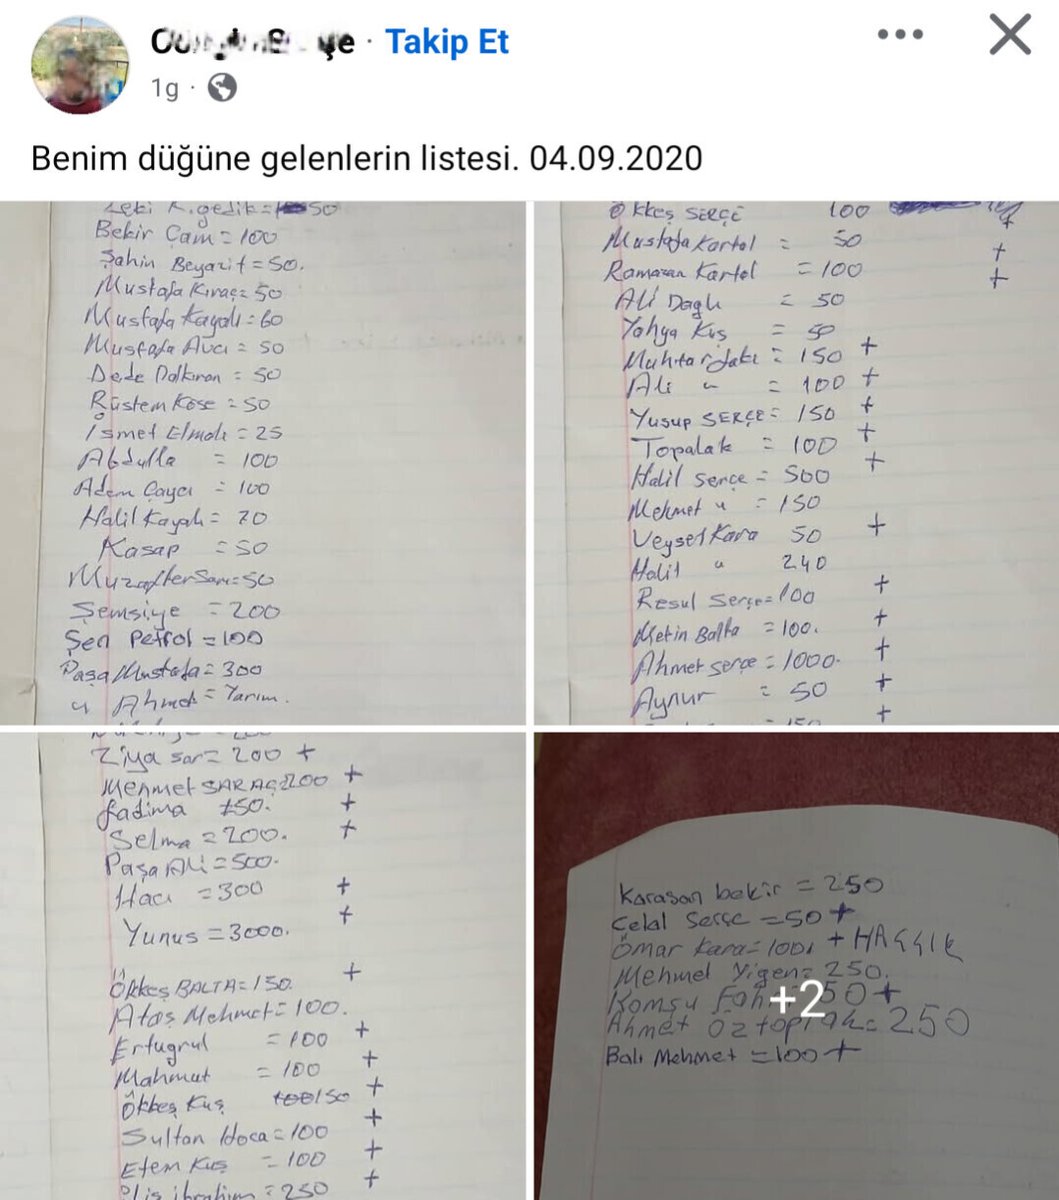 Takip Et
1g
Benim düğüne gelenlerin listesi. 04.09.2020
Zeki K.gedik = 50
Bekir Çam = 100
Şahin Beyazıt = 50.
Mustafa Kıraç = 50
Mustafa Kayalı = 60
Mustafa Avcı = 50
Dede Dalkıran = 50
Rüstem Köse = 50
İsmet Elmalı = 25
Abdulla = 100
Adem Çaycı = 100
Halil Kayalı = 70
Kasap = 50
Muzaffer Sarı = 50
Şemsiye = 200
Şen Petrol = 100
Paşa Mustafa = 300
" Ahmet = Yarım.
Ökkeş SERÇE 100 +
Mustafa Kartal = 50 +
Ramazan Kartal = 100 +
Ali Dağlı = 50
Yahya Kuş = 50
Muhtar = 150 +
Ali " = 100 +
Yusup SERÇE = 150 +
Topalak = 100 +
Halil Serçe = 500 +
Mehmet " = 150
Veysel Kara 50 +
Halil " 240
Resul Serçe = 100 +
Metin Balta = 100. +
Ahmet Serçe = 1000. +
Aynur = 50 +
= 150 +
Ziya Sar = 200 +
Mehmet SARAÇ = 200 +
Fadima 150. +
Selma = 200. +
Paşa Ali = 500.
Hacı = 300 +
Yunus = 3000. +
Ökkeş BALTA = 150. +
Ataş Mehmet = 100.
Ertugrul = 100 +
Mahmut = 100 +
Ökkeş Kuş 100 150 +
Sultan Hoca = 100 +
Etem Kuş = 100 +
ibrahim = 250 +
Karasan bekir = 250
Celal Serçe = 50 +
Ömar Kara = 100. +
Mehmet Yigen = 250.
Komşu 50 +
Ahmet Öztoprak = 250
Balı Mehmet = 100 +
+2